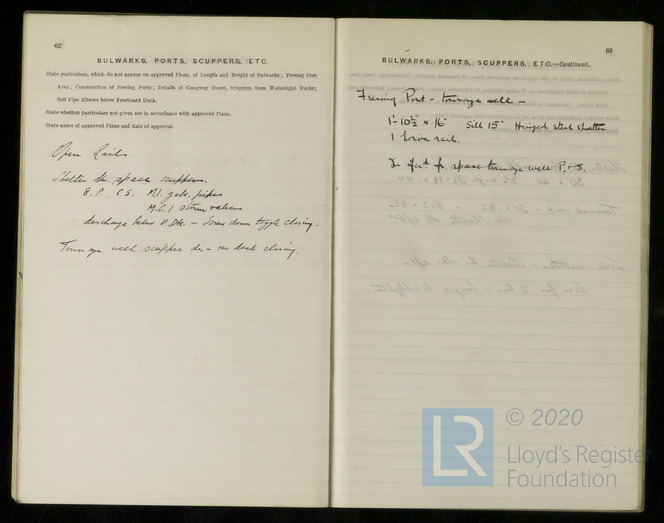 62
BULWARKS, PORTS, SCUPPERS, ETC.
State particulars, which do not appear on approved Plans, of Length and Height of Bulwarks; Freeing Port
Area; Construction of Freeing Ports; Details of Gangway Doors, Scuppers from Watertight Decks;
Soil Pipe Elbows below Freeboard Deck.
State whether particulars not given are in accordance with approved Plans.
State name of approved Plans and date of approval.
Open Rails
Shelter dk. space scuppers.
8. P. 8. S. M.S. galv. pipes
M.C.I storm valves
discharge below U.Dk. – Screw down toggle closing.
Tonnage well scupper do. – no deck closing.
63
BULWARKS, PORTS, SCUPPERS, ETC.—Continued.
Freeing Port – tonnage well –
1'-10½" x 16" Sill 15" Hinged steel shutter
1 horiz. rail.
space tonnage well P. & S.
© 2020
LR
Lloyd's Register
Foundation